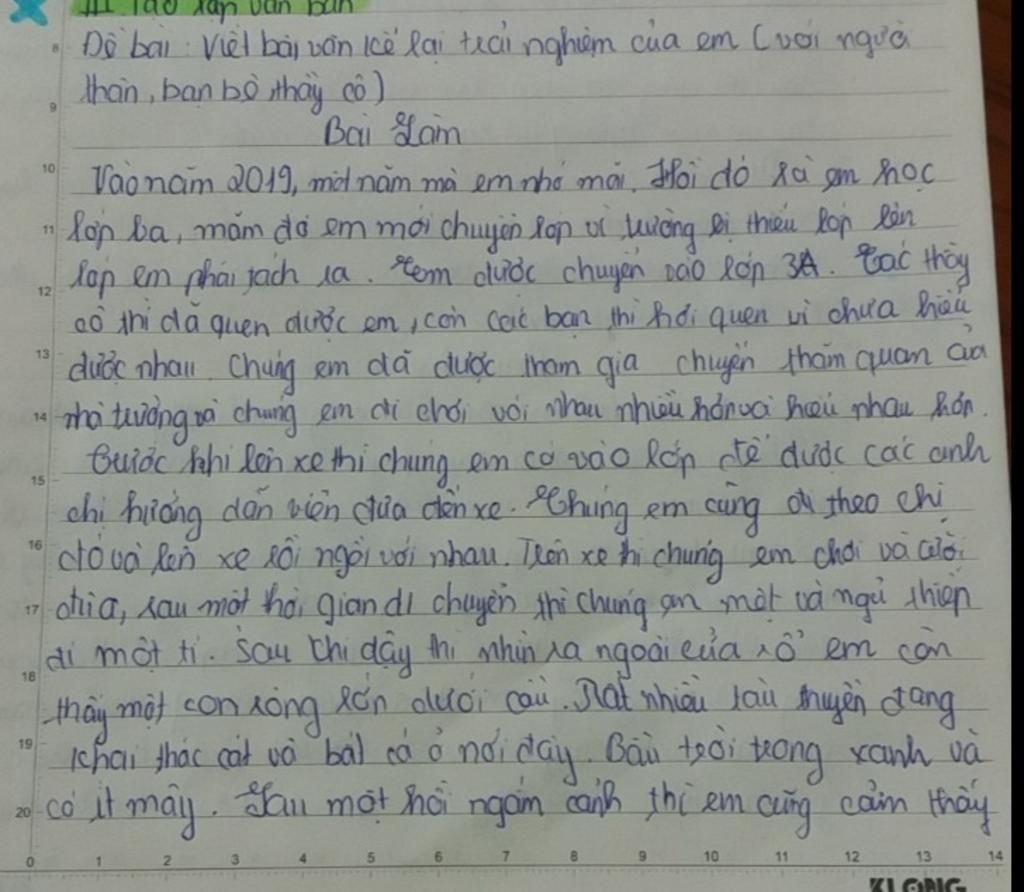 III Tạo lập văn bản
Đề bài: Viết bài văn kể lại trải nghiệm của em (với người
thân, bạn bè, thầy cô)
Bài làm
Vào năm 2019, một năm mà em nhớ mãi. Hồi đó là em học
lớp ba, năm đó em mới chuyển lớp vì trường bị thiếu lớp lên
lớp em phải tách ra. Em được chuyển vào lớp 3A. Các thầy
cô thì đã quen được em, còn các bạn thì hơi quen vì chưa hiểu
được nhau. Chúng em đã được tham gia chuyến thăm quan của
nhà trường và chúng em đi chơi với nhau nhiều hơn và hiểu nhau hơn.
Trước khi lên xe thì chúng em có vào lớp để được các anh
chị hướng dẫn viên đưa đến xe. Chúng em cũng đi theo chị
đó và lên xe rồi ngồi với nhau. Trên xe thì chúng em chơi và cười
đùa, sau một thời gian di chuyển thì chúng em mệt và ngủ thiếp
đi một tí. Sau khi dậy thì nhìn ra ngoài cửa sổ em còn
thấy một con sông lớn dưới cầu. Rất nhiều tàu thuyền đang
khai thác cát và bắt cá ở nơi đây. Bầu trời trong xanh và
có ít mây. Sau một hồi ngắm cảnh thì em cũng cảm thấy
8
9
10
11
12
13
14
15
16
17
18
19
20
0 1 2 3 4 5 6 7 8 9 10 11 12 13 14
KLONG